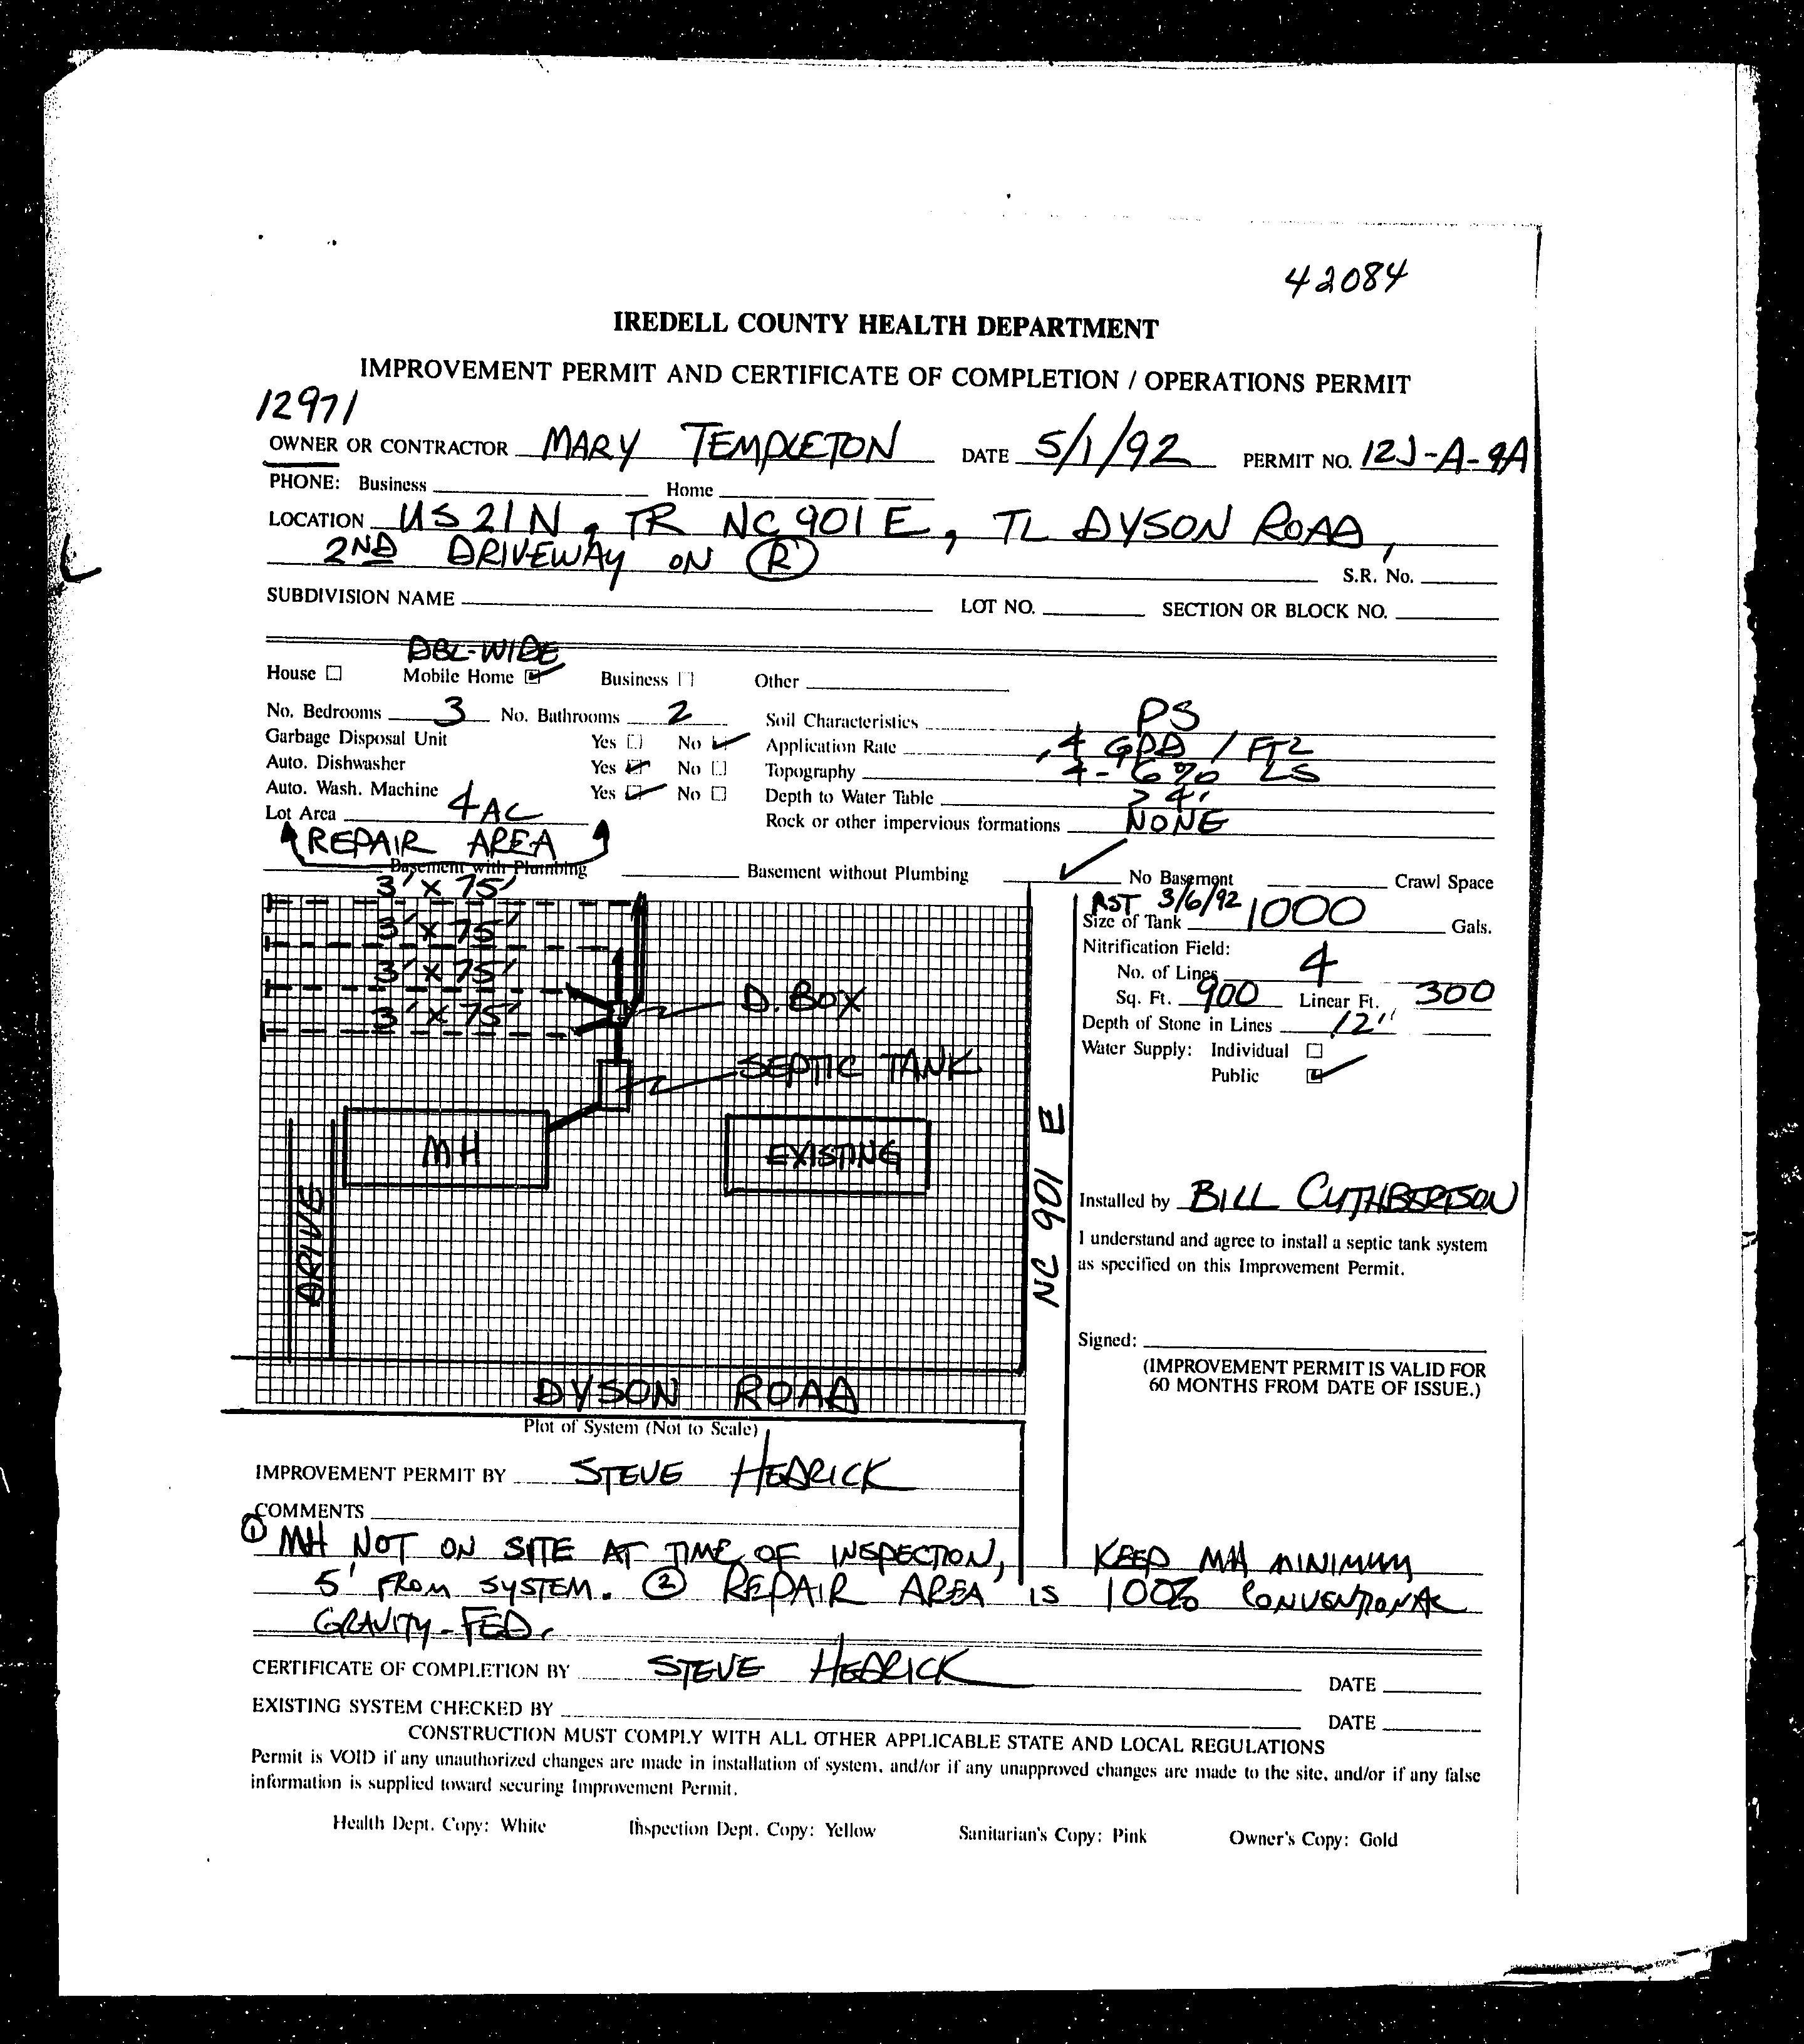 42084
IREDELL COUNTY HEALTH DEPARTMENT
IMPROVEMENT PERMIT AND CERTIFICATE OF COMPLETION / OPERATIONS PERMIT
12971
OWNER OR CONTRACTOR MARY TEMPLETON DATE 5/1/92 PERMIT NO. 12J-A-9A
PHONE: Business Home
LOCATION US 21 N, TR NC 901 E, TL DYSON ROAD,
2ND DRIVEWAY ON R
S.R. No.
SUBDIVISION NAME LOT NO. SECTION OR BLOCK NO.
DBL-WIDE
House Mobile Home Business Other
No. Bedrooms 3 No. Bathrooms 2 Soil Characteristics PS
Garbage Disposal Unit Yes No Application Rate .4 GPD / FT2
Auto. Dishwasher Yes No Topography 4-6% LS
Auto. Wash. Machine Yes No Depth to Water Table > 4'
Lot Area 4 AC Rock or other impervious formations NONE
REPAIR AREA
Basement with Plumbing Basement without Plumbing No Basement Crawl Space
3' x 75'
3' x 75'
3' x 75'
3' x 75'
D. BOX
SEPTIC TANK
MH
EXISTING
DRIVE
DYSON ROAD
NC 901 E
RST 3/6/92
Size of Tank 1000 Gals.
Nitrification Field:
No. of Lines 4
Sq. Ft. 900 Linear Ft. 300
Depth of Stone in Lines 12"
Water Supply: Individual
Public
Installed by BILL CUTHBERTSON
I understand and agree to install a septic tank system
as specified on this Improvement Permit.
Signed:
(IMPROVEMENT PERMIT IS VALID FOR
60 MONTHS FROM DATE OF ISSUE.)
Plot of System (Not to Scale)
IMPROVEMENT PERMIT BY STEVE HEDRICK
COMMENTS
① MH NOT ON SITE AT TIME OF INSPECTION, KEEP MH MINIMUM
5' FROM SYSTEM. ② REPAIR AREA IS 100% CONVENTIONAL
GRAVITY-FED.
CERTIFICATE OF COMPLETION BY STEVE HEDRICK DATE
EXISTING SYSTEM CHECKED BY DATE
CONSTRUCTION MUST COMPLY WITH ALL OTHER APPLICABLE STATE AND LOCAL REGULATIONS
Permit is VOID if any unauthorized changes are made in installation of system, and/or if any unapproved changes are made to the site, and/or if any false
information is supplied toward securing Improvement Permit.
Health Dept. Copy: White Inspection Dept. Copy: Yellow Sanitarian's Copy: Pink Owner's Copy: Gold